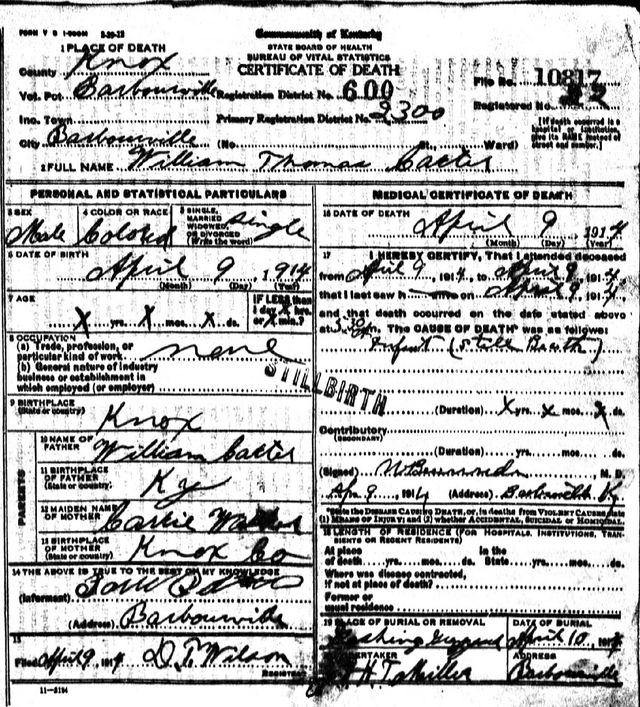 Commonwealth of Kentucky
STATE BOARD OF HEALTH
BUREAU OF VITAL STATISTICS
CERTIFICATE OF DEATH
1 PLACE OF DEATH
County Knox
File No. 10817
Vot. Pct. Barbourville Registration District No. 600
Registered No.
Inc. Town Primary Registration District No. 2300
[If death occurred in a hospital or institution, give its NAME instead of street and number.]
City Barbourville (No St., Ward)
2 FULL NAME William Thomas Carter
PERSONAL AND STATISTICAL PARTICULARS
3 SEX Male
4 COLOR OR RACE Colored
5 SINGLE, MARRIED WIDOWED, OR DIVORCED (Write the word) Single
6 DATE OF BIRTH
April 9 1914
(Month) (Day) (Year)
7 AGE
X yrs. X mos. X ds.
IF LESS than 1 day X hrs. or X min.?
8 OCCUPATION
(a) Trade, profession, or particular kind of work none
(b) General nature of industry business or establishment in which employed (or employer)
STILLBIRTH
9 BIRTHPLACE
(State or country) Knox
PARENTS
10 NAME OF FATHER William Carter
11 BIRTHPLACE OF FATHER (State or country) Ky
12 MAIDEN NAME OF MOTHER Carrie
13 BIRTHPLACE OF MOTHER (State or country) Knox Co
14 THE ABOVE IS TRUE TO THE BEST OF MY KNOWLEDGE
(Informant)
(Address) Barbourville
15
Filed April 9 1914 D. T. Wilson
REGISTRAR
11-3184
MEDICAL CERTIFICATE OF DEATH
16 DATE OF DEATH
April 9 1914
(Month) (Day) (Year)
17 I HEREBY CERTIFY, That I attended deceased
from April 9 1914, to April 9 1914
that I last saw h alive on April 9 1914
and that death occurred on the date stated above
at 3 30 m. The CAUSE OF DEATH* was as follows:
Infant (Still Birth)
(Duration) X yrs. X mos. X ds.
Contributory
(SECONDARY)
(Duration) yrs. mos. ds.
(Signed) M. D.
Apr 9 1914 (Address) Barbourville Ky.
*State the DISEASE CAUSING DEATH, or, in deaths from VIOLENT CAUSES, state (1) MEANS OF INJURY; and (2) whether ACCIDENTAL, SUICIDAL or HOMICIDAL.
18 LENGTH OF RESIDENCE (FOR HOSPITALS, INSTITUTIONS, TRANSIENTS OR RECENT RESIDENTS)
At place of death yrs. mos. ds. In the State yrs. mos. ds.
Where was disease contracted, if not at place of death?
Former or usual residence
19 PLACE OF BURIAL OR REMOVAL
DATE OF BURIAL
April 10 1914
UNDERTAKER
ADDRESS
Barbourville